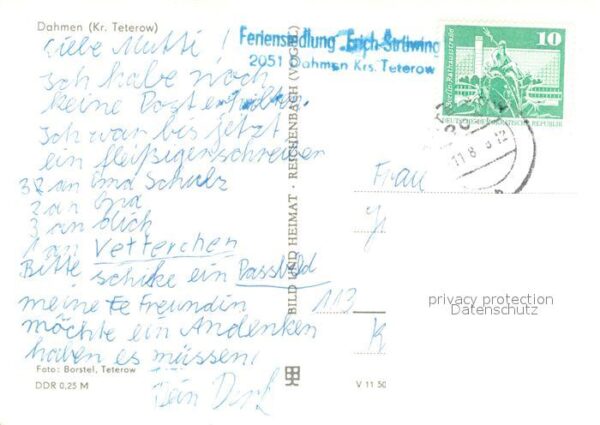 Dahmen (Kr. Teterow)
Liebe Mutti!
Ich habe noch
keine Post erhalten.
Ich war bis jetzt
ein fleißigenschreiben
3 an Oma Schulz
2 an Opa
3 an dich
1 an Vetterchen
Bitte schike ein Passbild
meine Freundin
möchte ein Andenken
haben es müssen!
Dein Dirk
Foto: Borstel, Teterow
DDR 0,25 M
BILD UND HEIMAT · REICHENBACH (VOGTL)
V 11 50
Feriensiedlung "Erich Strüwing"
2051 Dahmen Krs. Teterow
10
Berlin, Rathausstraße
DEUTSCHE DEMOKRATISCHE REPUBLIK
11.8.
12
Frau
113
K
privacy protection
Datenschutz